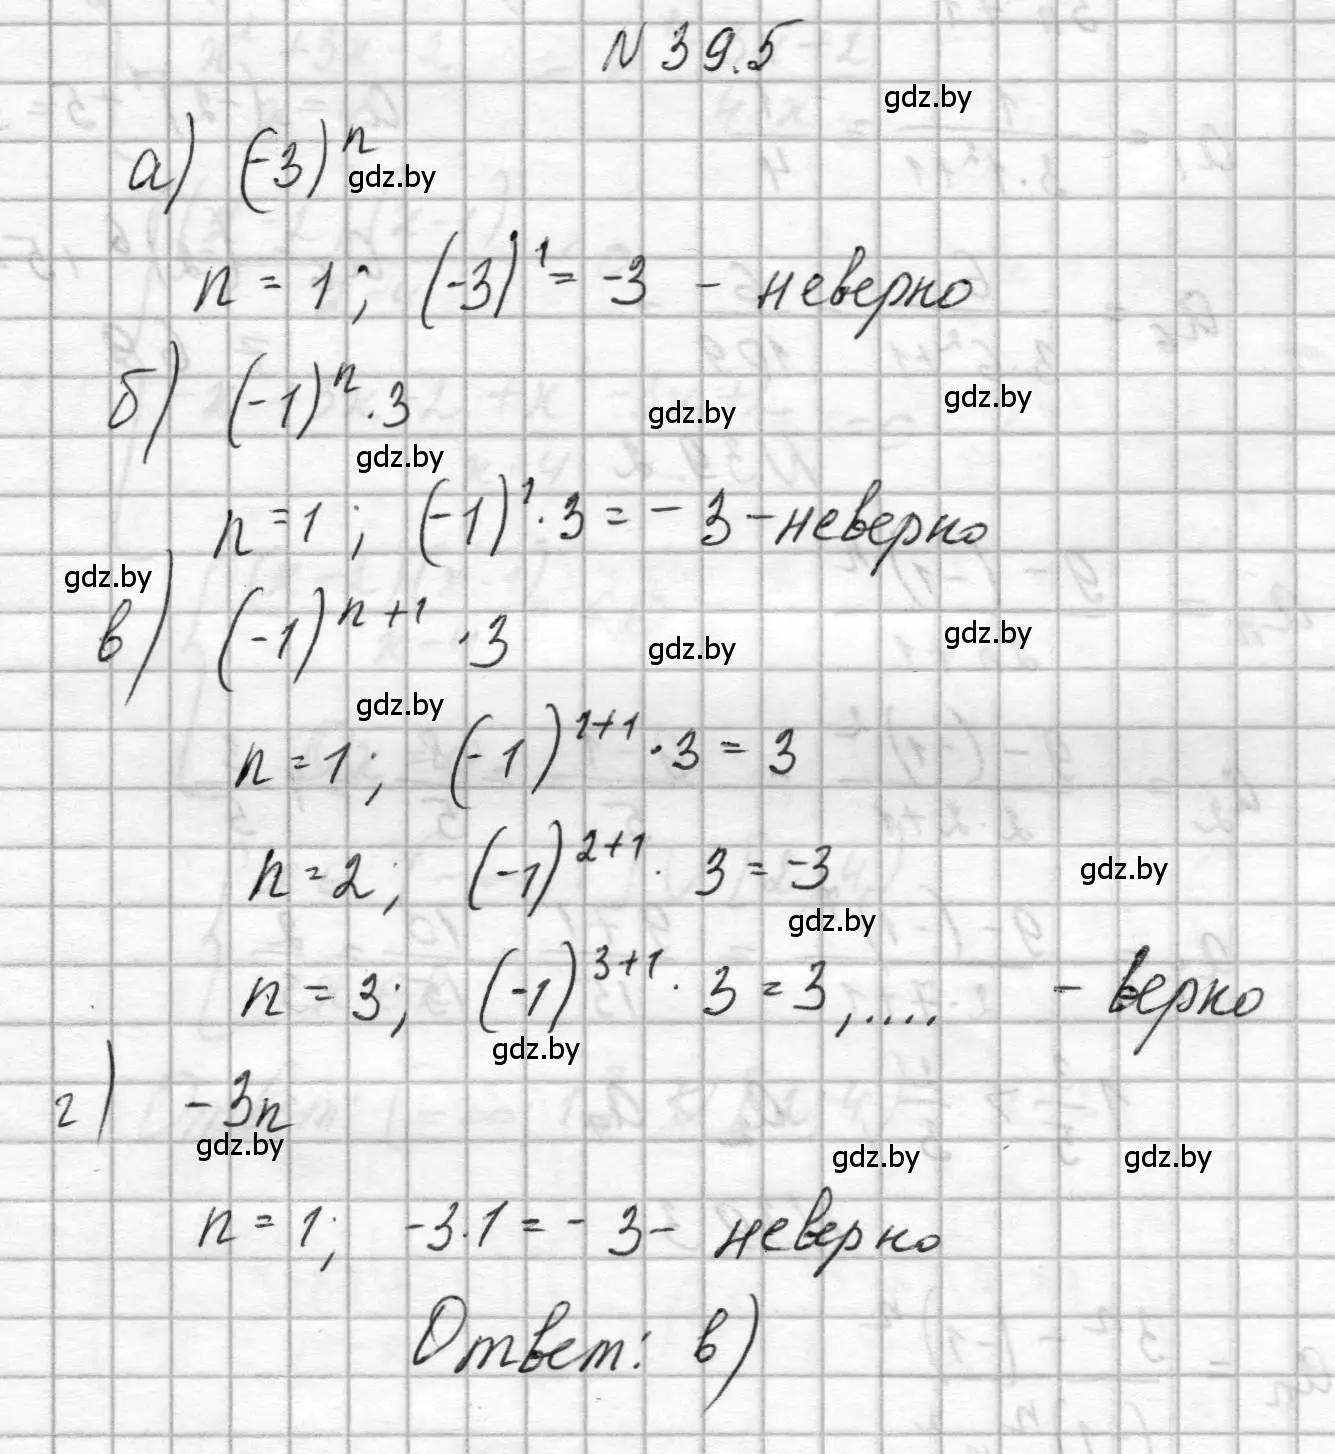 N 39.5
gdz.by
а) (-3)^n
gdz.by
n = 1; (-3)^1 = -3 - неверно
б) (-1)^n · 3
gdz.by gdz.by
gdz.by
n = 1; (-1)^1 · 3 = - 3 - неверно
gdz.by
в) (-1)^{n+1} · 3
gdz.by gdz.by
gdz.by
n = 1; (-1)^{1+1} · 3 = 3
n = 2; (-1)^{2+1} · 3 = -3
gdz.by
gdz.by
n = 3; (-1)^{3+1} · 3 = 3, .... - верно
gdz.by
г) -3n
gdz.by gdz.by gdz.by
n = 1; -3 · 1 = - 3 - неверно
Ответ: в)